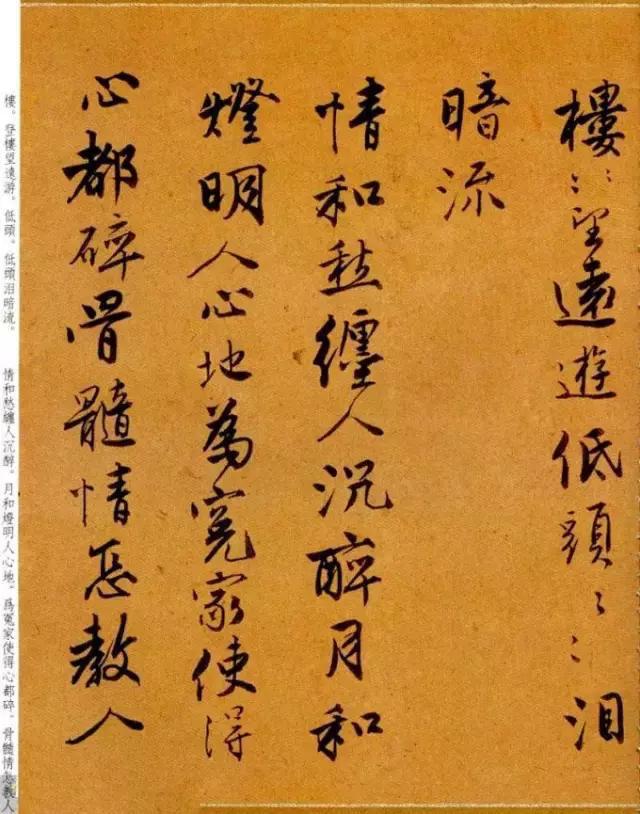 樓〻望遠遊低頭〻〻淚
暗流
情和愁纏人沉醉月和
燈明人心地為冤家使得
心都碎骨髓情怎教人
樓。登樓望遠游。低頭。低頭泪暗流。
情和愁纏人沉醉。月和燈明人心地。爲冤家使得心都碎。骨髓情怎教人